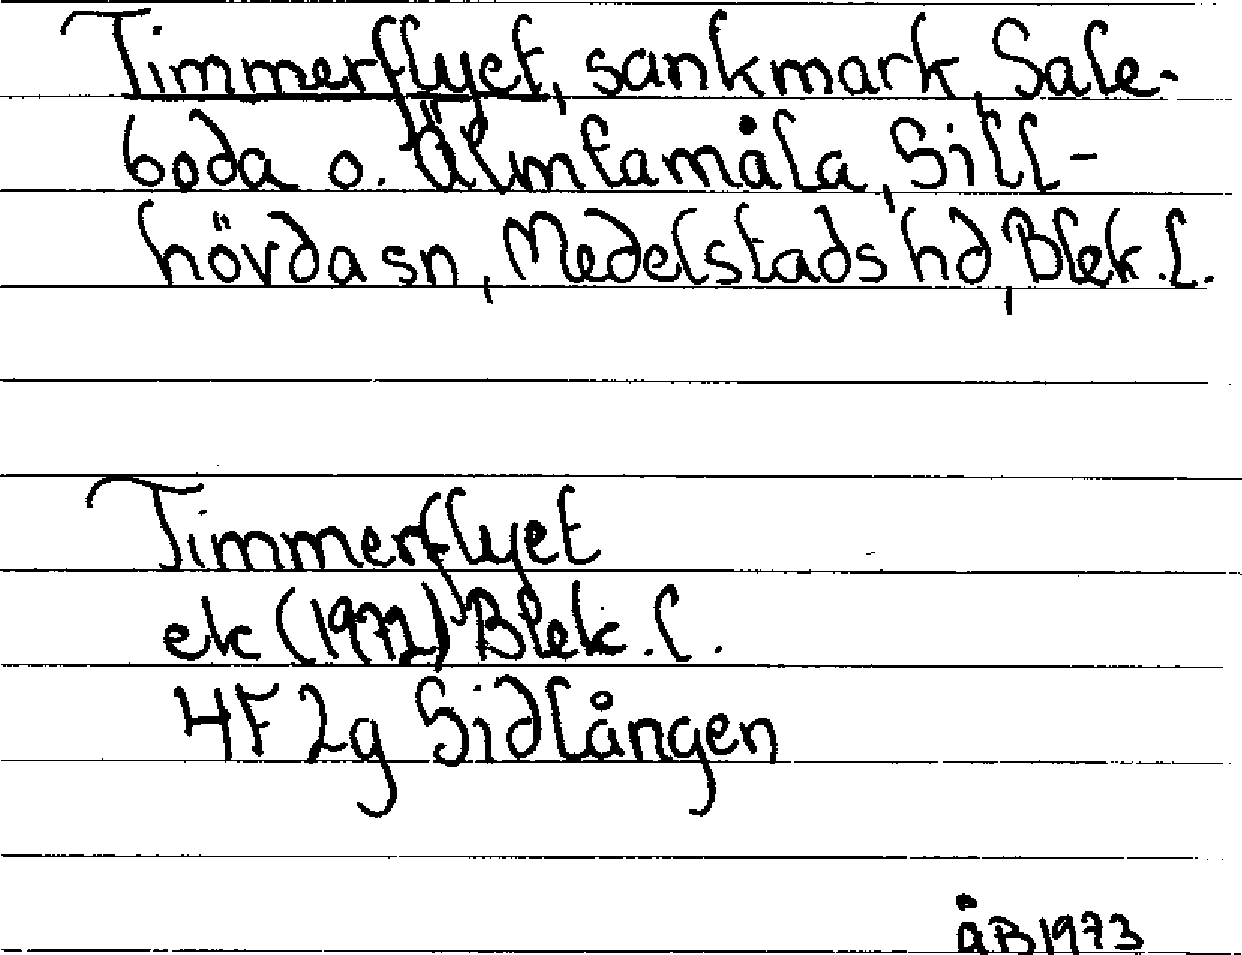 Timmerflyet, sankmark, Sale-
boda o. Älmtamåla, Sill-
hövda sn, Medelstads hd, Blek. l.
Timmerflyet
ek (1972) Blek. l.
4F 2g Sidlången
ÅB 1973